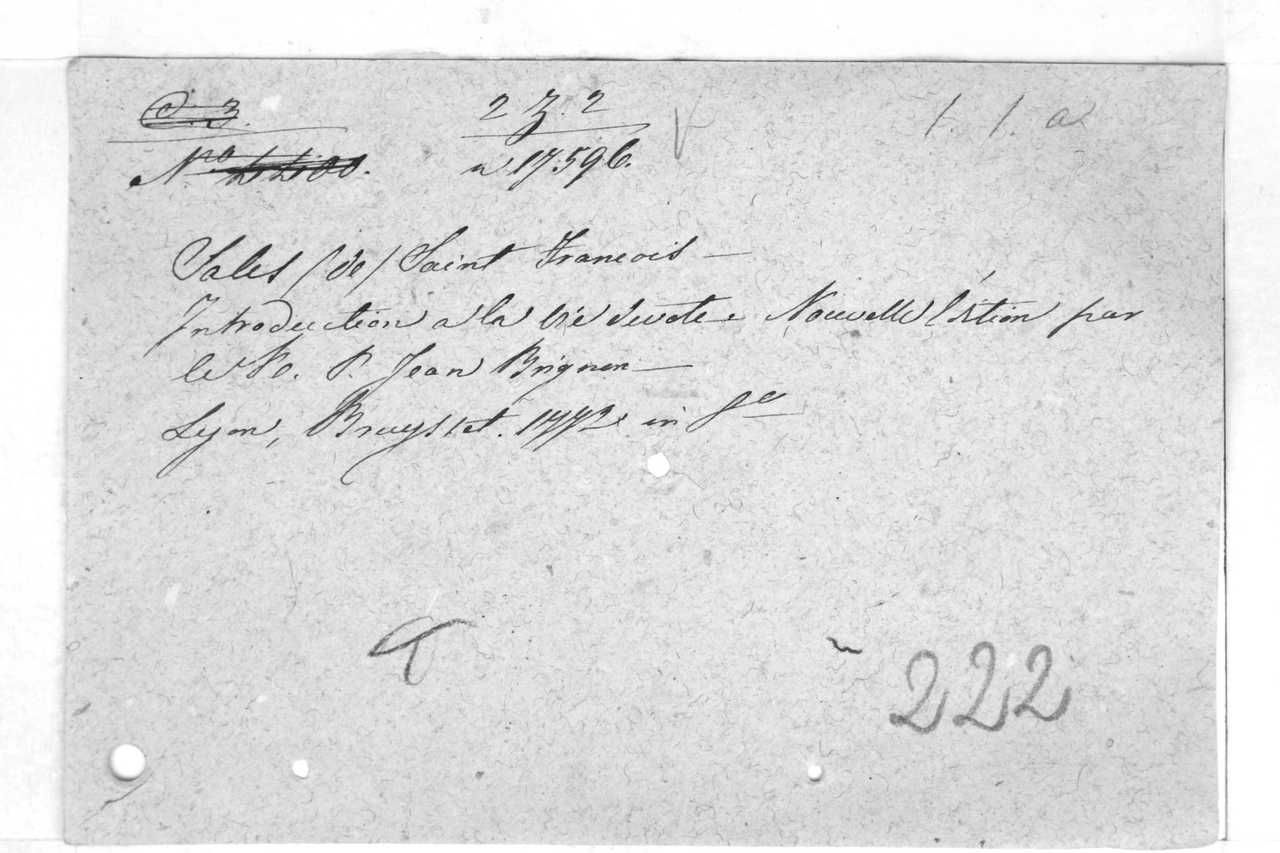 C. 3. 2 Z. 2 1. 1. a
Nro 4400. n 17.596.
Sales (de) Saint Francois —
Introduction a la vie devote. Nouvelle Edition par
le R. P. Jean Brignon —
Lyon, Bruyset. 1772. in
222